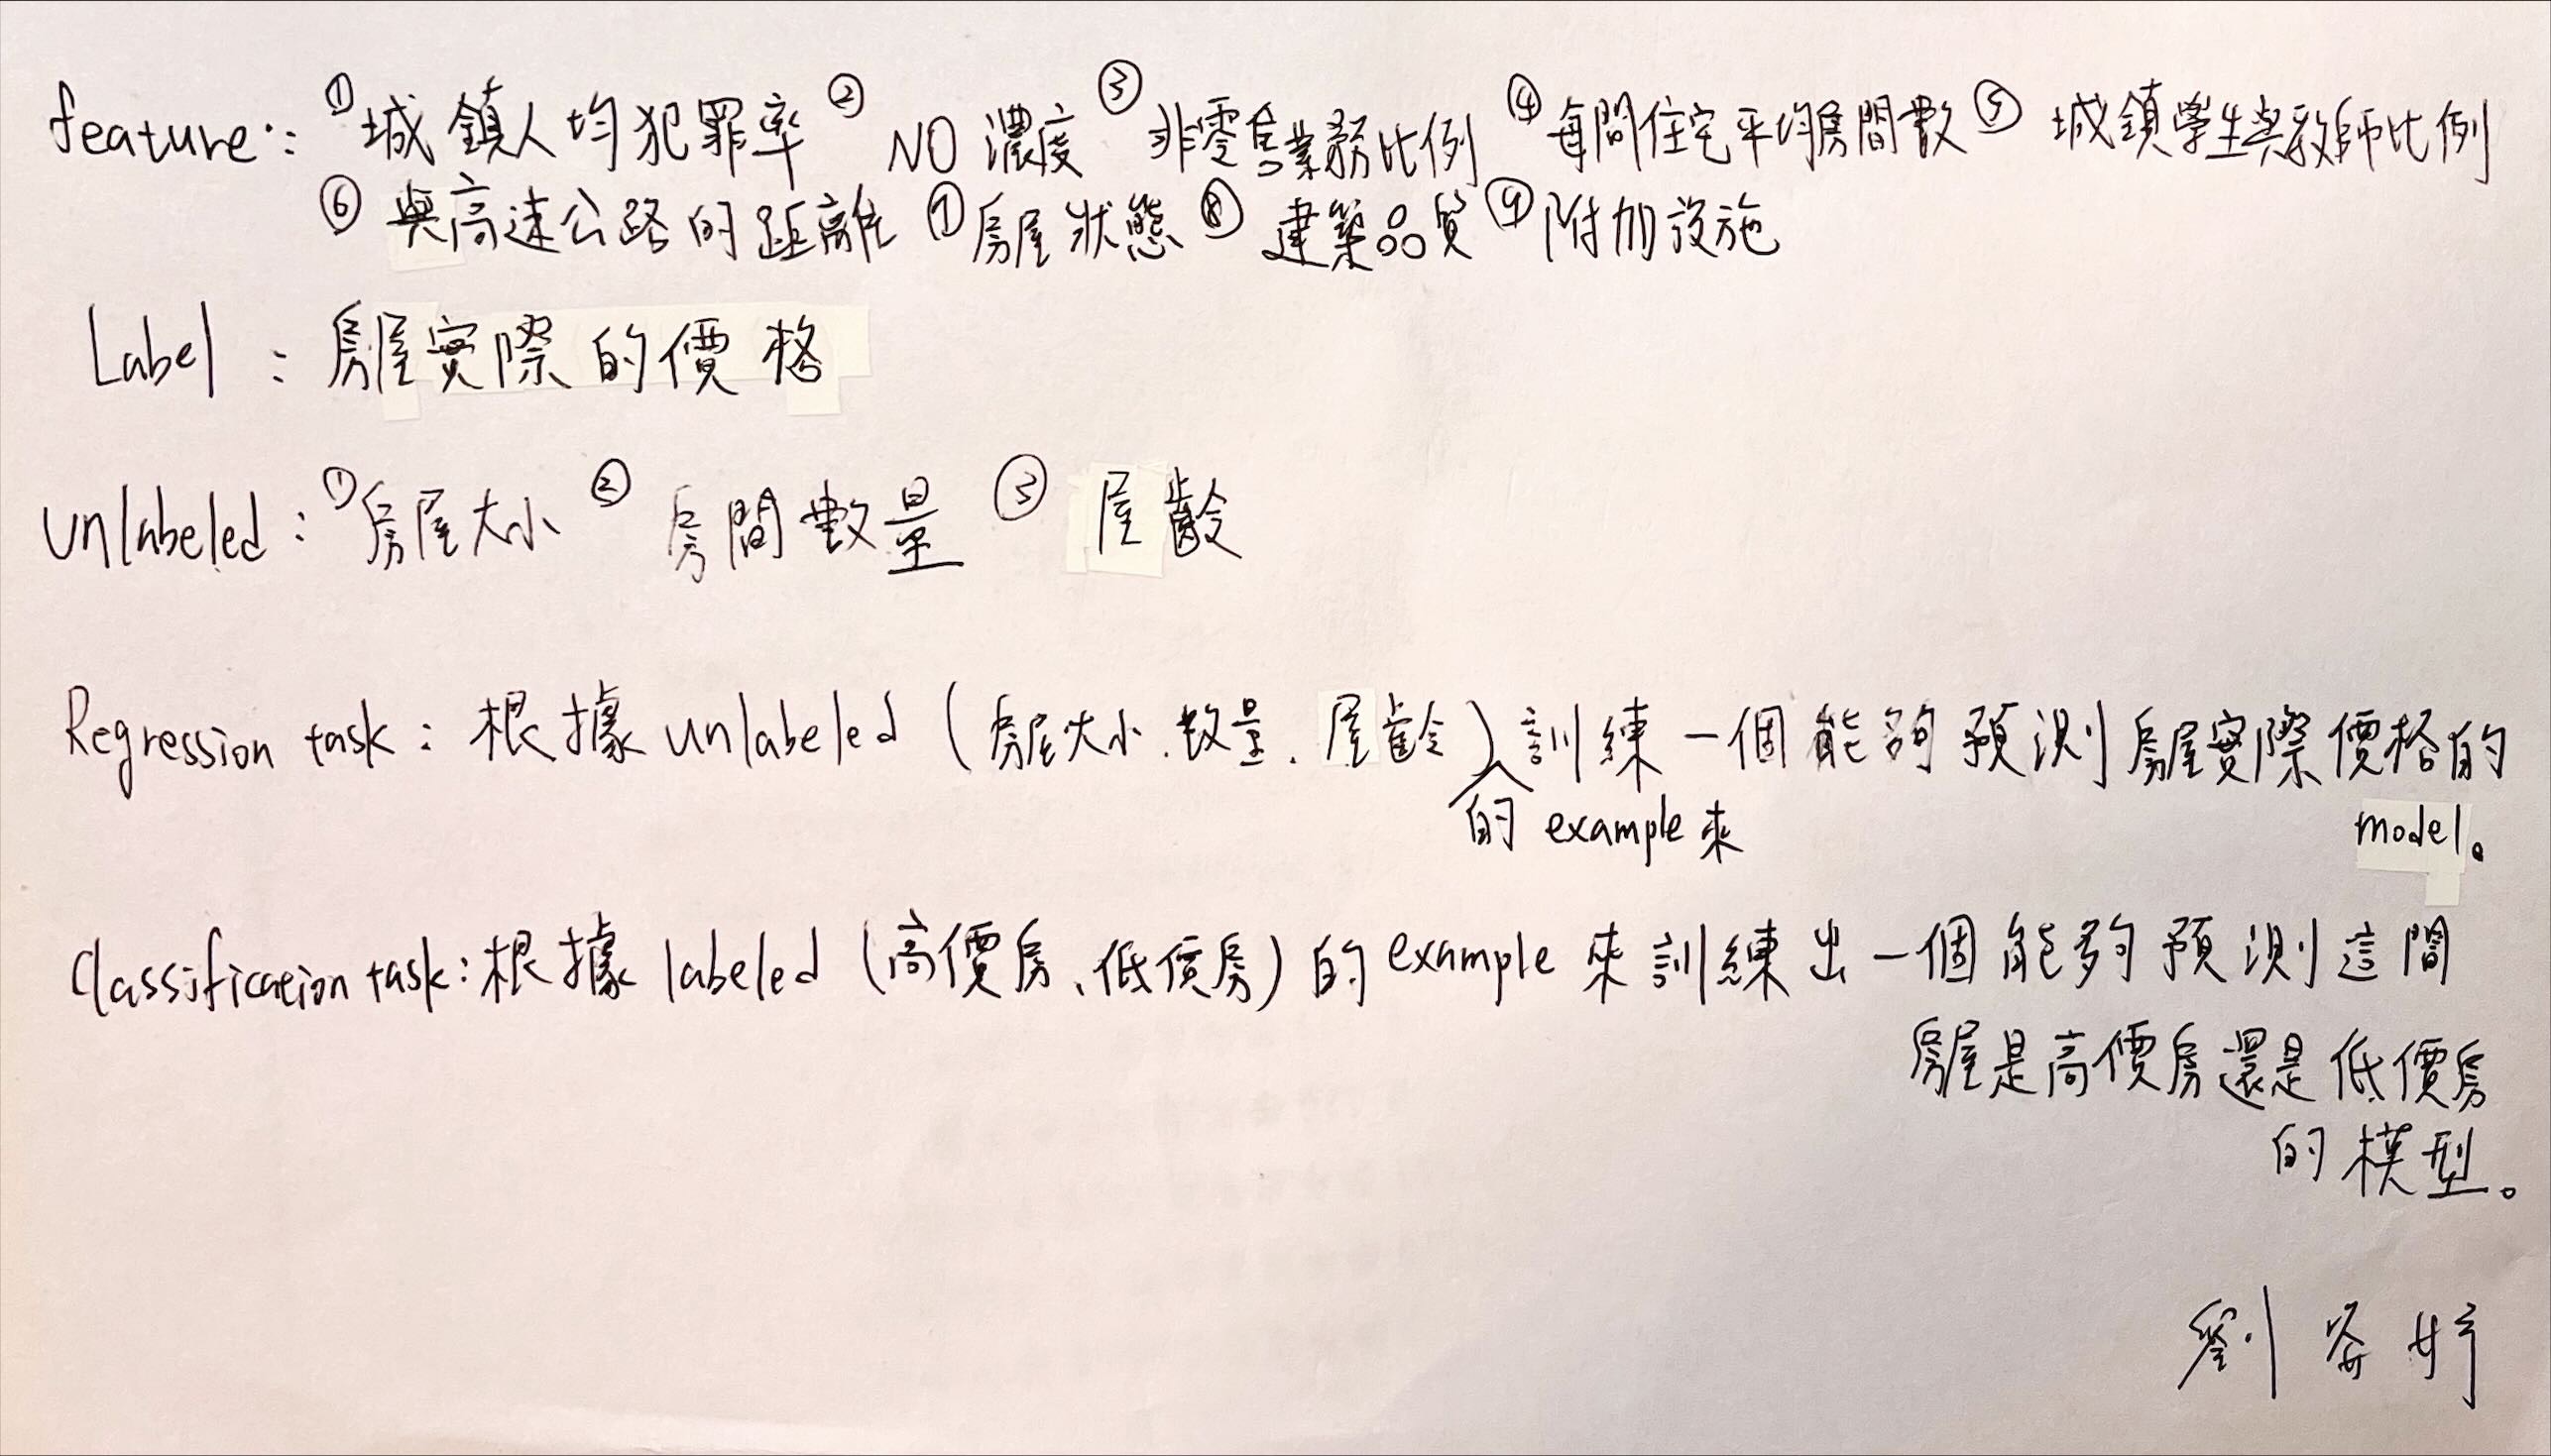 feature: ①城鎮人均犯罪率 ② NO 濃度 ③ 非零售業務比例 ④每間住宅平均房間數 ⑤ 城鎮學生與教師比例
⑥ 與高速公路的距離 ⑦房屋狀態 ⑧ 建築品質 ⑨附加設施
Label : 房屋實際的價格
unlabeled : ①房屋大小 ② 房間數量 ③ 屋齡
Regression task : 根據 unlabeled (房屋大小、數量、屋齡) 訓練一個能夠預測房屋實際價格的
的 example 來
model。
Classification task : 根據 labeled (高價房、低價房) 的 example 來訓練出一個能夠預測這間
房屋是高價房還是低價房
的模型。
劉 婷